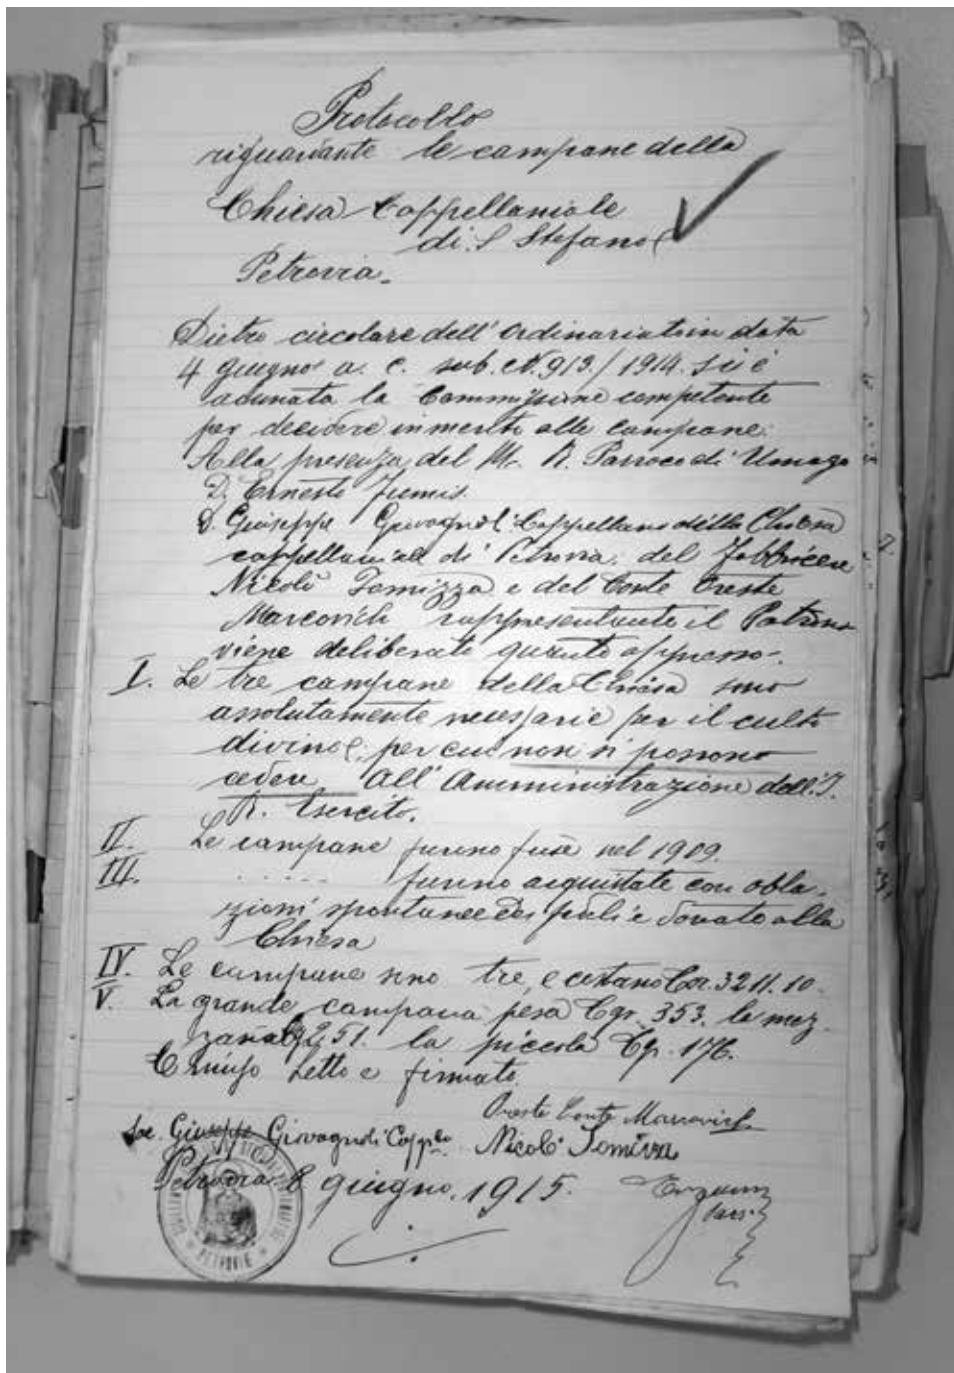 Protocollo
riguardante le campane della
Chiesa Cappellaniale
di S Stefano
Petrovia.
Dietro circolare dell' Ordinariato in data
4 giugno a. c. sub. N. 913./1914. si è
adunata la Commissione competente
per decidere in merito alle campane:
Alla presenza del M. R. Parroco di Umago
D. Ernesto Fumis.
D. Giuseppe Giovagnoli Cappellano della Chiesa
cappellaniale di Petrovia: del fabbriciere
Nicolò Tomizza e del Conte Oreste
Marcovich rappresentante il Patrono
viene deliberato quanto appresso.
I. Le tre campane della Chiesa sono
assolutamente necessarie per il culto
divino, per cui non si possono
cedere all' Amministrazione dell. I.
R. Esercito.
II. Le campane furono fuse nel 1909.
III. . . . . . furono acquistate con obla-
zioni spontanee dei fedeli e donate alla
Chiesa
IV. Le campane sono tre, e costano Cor. 3211.10.
V. La grande campana pesa Cgr. 353. la mez-
zana 251. la piccola Cgr. 176.
Chiuso letto e firmato.
Oreste Conte Marcovich
Sac. Giuseppe Giovagnoli Capp.
Nicolò Tomizza
Petrovia 8 giugno. 1915.